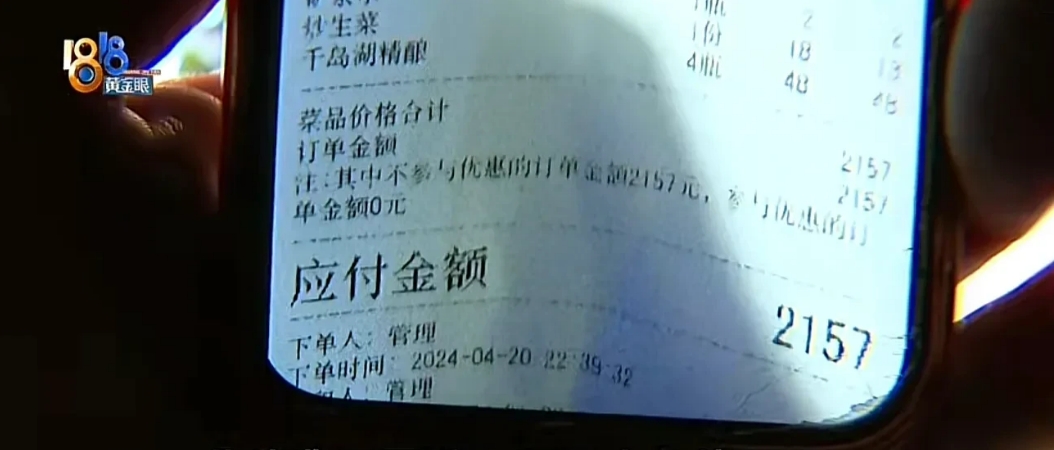 1818
黄金眼
1瓶 2 2
炒生菜 1份 18 18
千岛湖精酿 4瓶 48 48
菜品价格合计 2157
订单金额 2157
注:其中不参与优惠的订单金额2157元,参与优惠的订
单金额0元
应付金额 2157
下单人: 管理
下单时间: 2024-04-20 22:39:32
管理